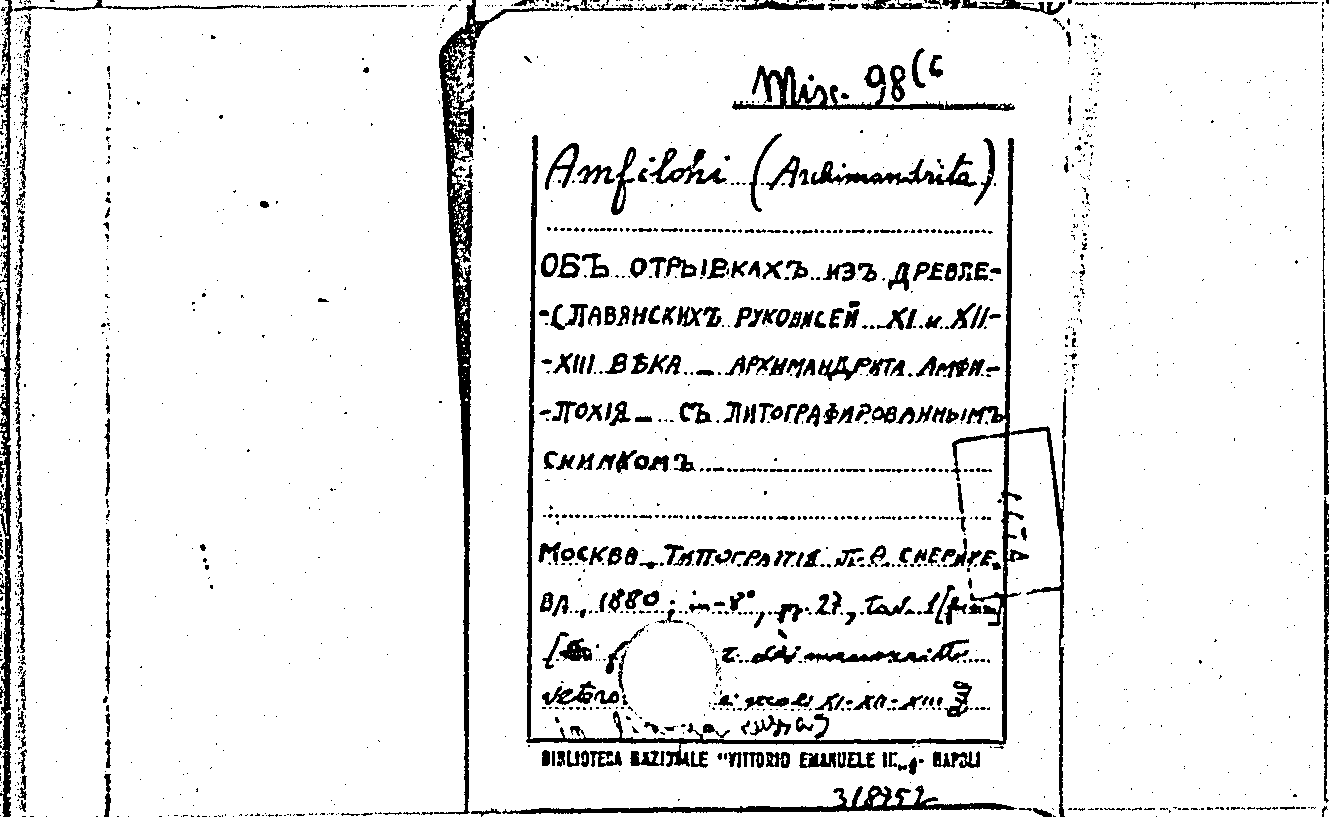 Misc. 98(6
Amfilohi (Archimandrita)
ОБЪ ОТРЫВКАХЪ ИЗЪ ДРЕВЛЕ-
-СЛАВЯНСКИХЪ РУКОПИСЕЙ XI и XII-
-XIII ВѢКА — АРХИМАНДРИТА АМФИ-
-ЛОХІЯ — СЪ ЛИТОГРАФИРОВАННЫМЪ
СНИМКОМЪ
МОСКВА. ТИПОГРАПІЯ Л.Ѳ. СНЕГИРЕ-
ВА, 1880; in-8°, pp. 27, tav. 1
di manoscritto
XI-XII-XIII
in russa]
BIBLIOTECA NAZIONALE "VITTORIO EMANUELE III" - NAPOLI
318752